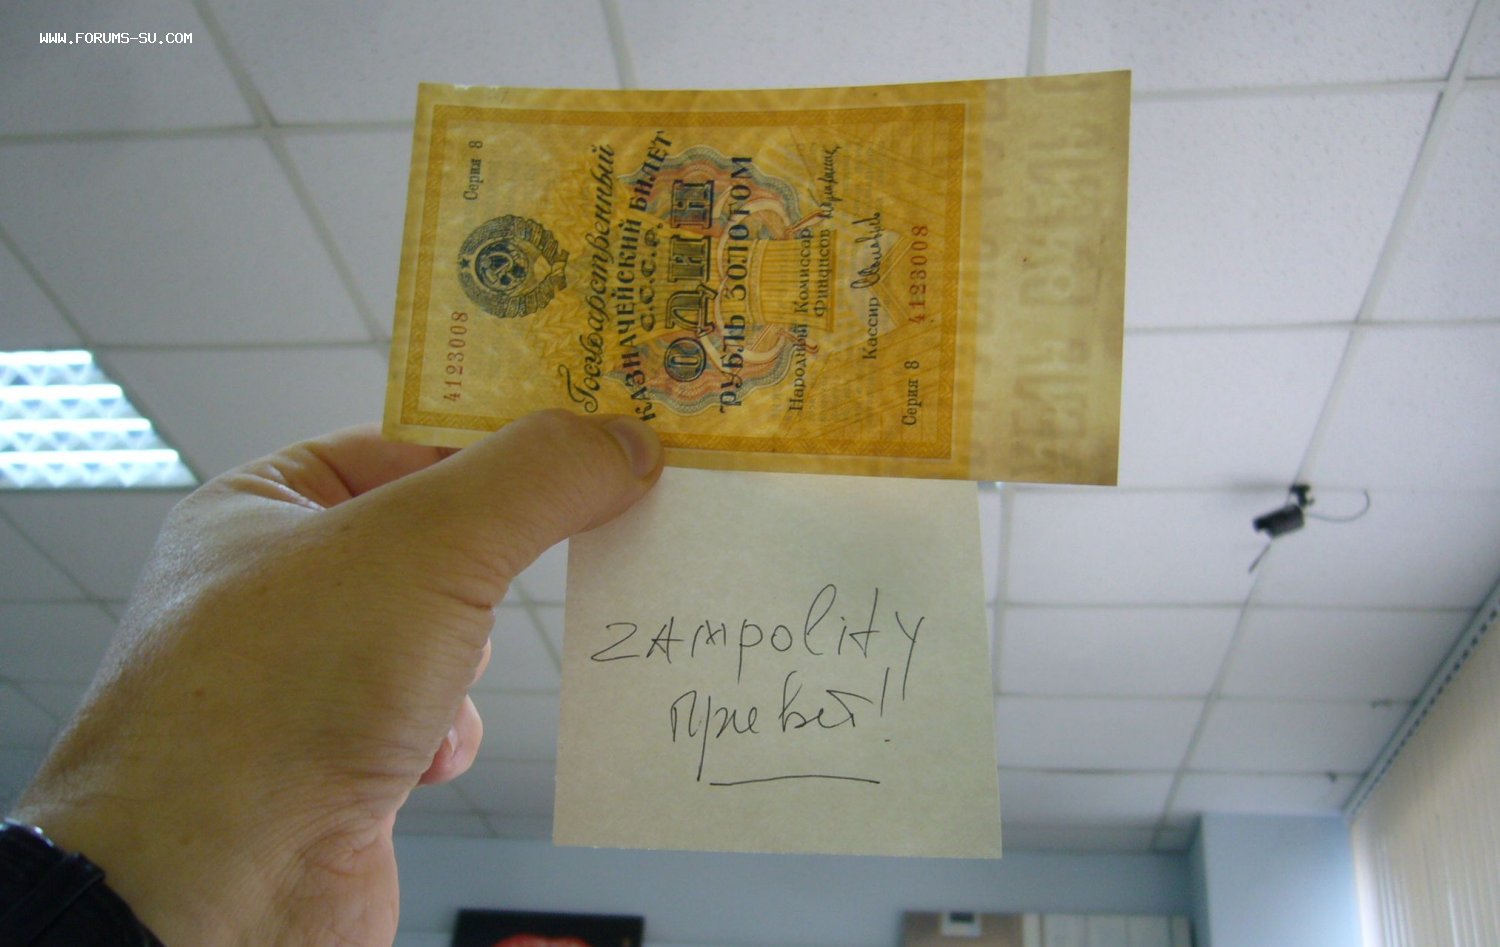 WWW.FORUMS-SU.COM
Серия 8
4123008
Государственный
КАЗНАЧЕЙСКИЙ БИЛЕТ
С.С.С.Р.
ОДИН
РУБЛЬ ЗОЛОТОМ
Народный Комиссар
Финансов
Кассир
4123008
Серия 8
ZAMPOLITY
привет!